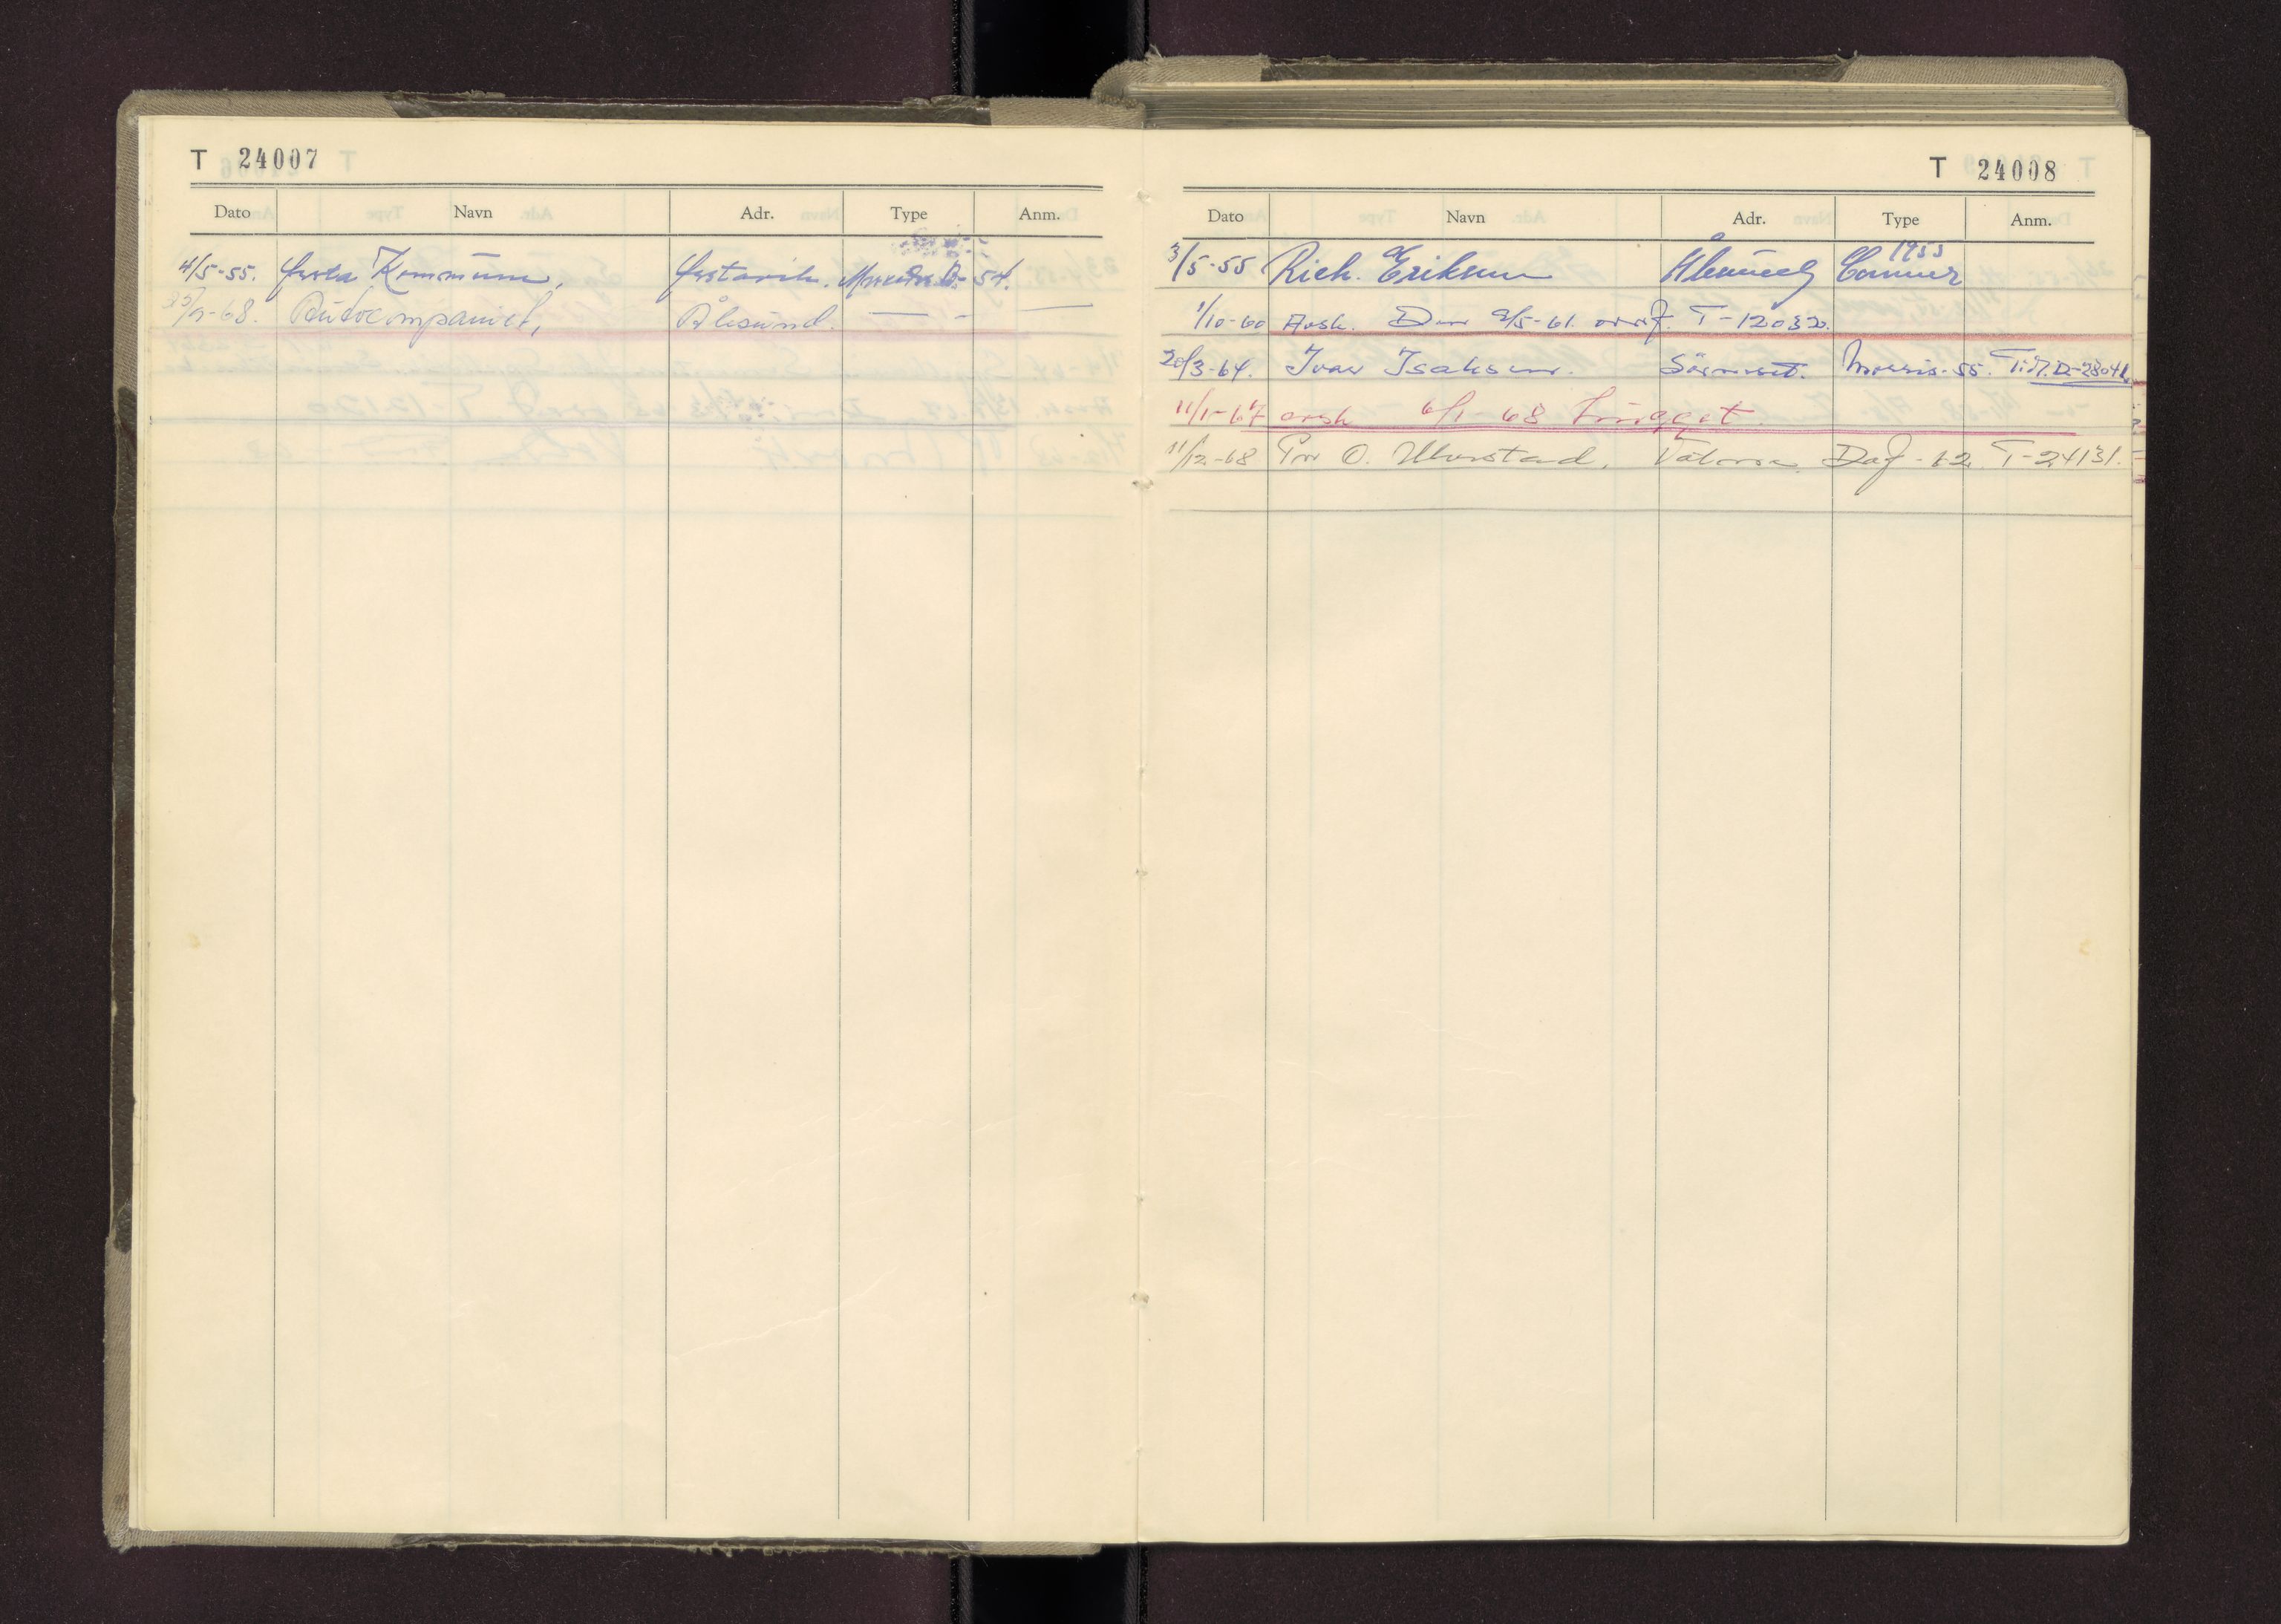 T 24007
Dato Navn Adr. Type Anm.
4/5-55. Ørsta Kommune, Ørstavik. 54.
/9-68. Autocompaniet, Ålesund. — - —
T 24008
Dato Navn Adr. Type Anm.
3/5-55 Rich. Eriksen Ålesund Commer 1953
1/10-60 Avsk. Den 9/5-61. overf. T-12032.
20/3-64. Ivar Isaksen. Morris-55. Tidl. D-28041
11/1-67 avsk 6/1-68 hugget
11/12-68 Per O. Daf-62. T-24131.